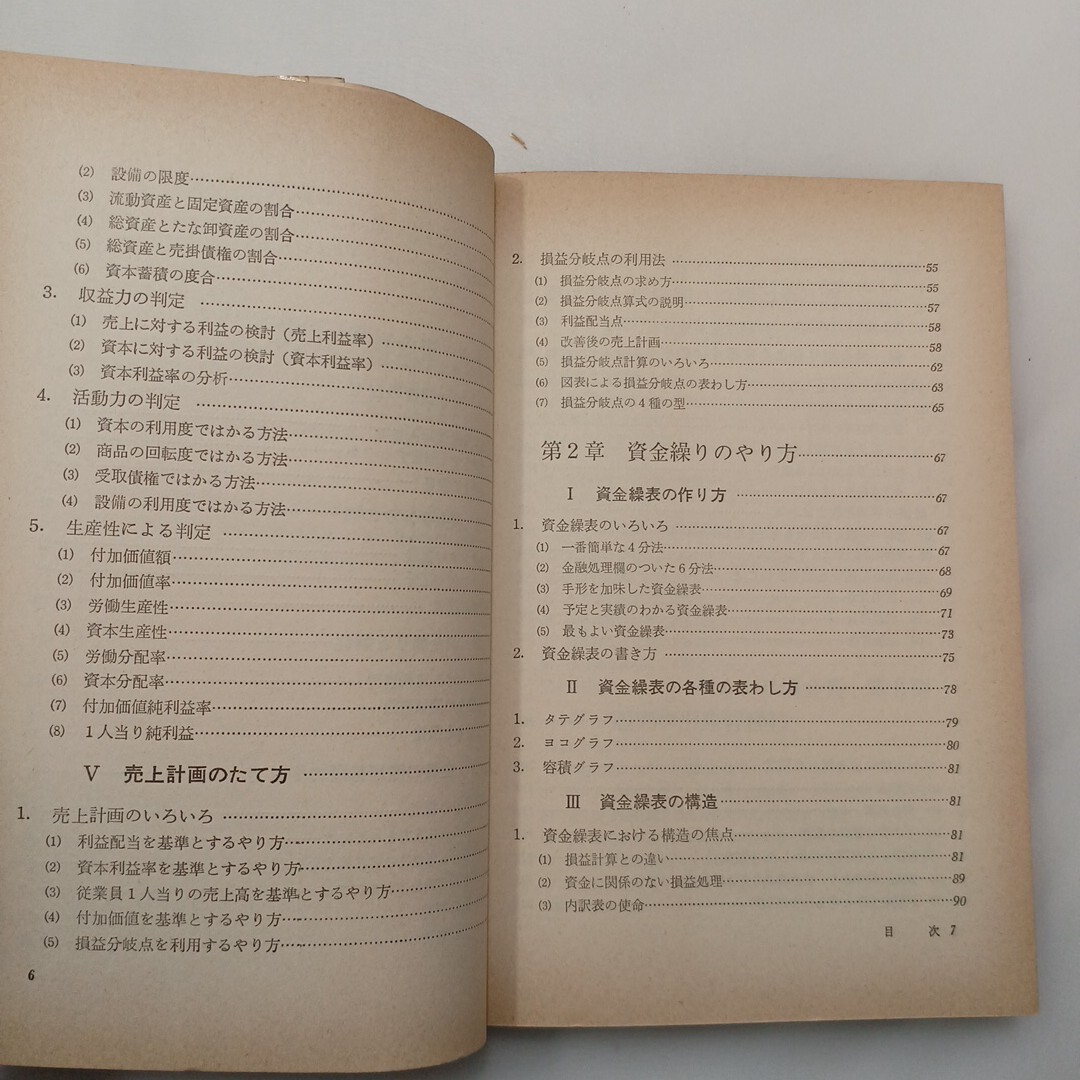 (2) 設備の限度
(3) 流動資産と固定資産の割合
(4) 総資産とたな卸資産の割合
(5) 総資産と売掛債権の割合
(6) 資本蓄積の度合
3. 収益力の判定
(1) 売上に対する利益の検討(売上利益率)
(2) 資本に対する利益の検討(資本利益率)
(3) 資本利益率の分析
4. 活動力の判定
(1) 資本の利用度ではかる方法
(2) 商品の回転度ではかる方法
(3) 受取債権ではかる方法
(4) 設備の利用度ではかる方法
5. 生産性による判定
(1) 付加価値額
(2) 付加価値率
(3) 労働生産性
(4) 資本生産性
(5) 労働分配率
(6) 資本分配率
(7) 付加価値純利益率
(8) 1人当り純利益
V 売上計画のたて方
1. 売上計画のいろいろ
(1) 利益配当を基準とするやり方
(2) 資本利益率を基準とするやり方
(3) 従業員1人当りの売上高を基準とするやり方
(4) 付加価値を基準とするやり方
(5) 損益分岐点を利用するやり方
6
2. 損益分岐点の利用法 55
(1) 損益分岐点の求め方 55
(2) 損益分岐点算式の説明 57
(3) 利益配当点 58
(4) 改善後の売上計画 58
(5) 損益分岐点計算のいろいろ 62
(6) 図表による損益分岐点の表わし方 63
(7) 損益分岐点の4種の型 65
第2章 資金繰りのやり方 67
I 資金繰表の作り方 67
1. 資金繰表のいろいろ 67
(1) 一番簡単な4分法 67
(2) 金融処理欄のついた6分法 68
(3) 手形を加味した資金繰表 69
(4) 予定と実績のわかる資金繰表 71
(5) 最もよい資金繰表 73
2. 資金繰表の書き方 75
II 資金繰表の各種の表わし方 78
1. タテグラフ 79
2. ヨコグラフ 80
3. 容積グラフ 81
III 資金繰表の構造 81
1. 資金繰表における構造の焦点 81
(1) 損益計算との違い 81
(2) 資金に関係のない損益処理 89
(3) 内訳表の使命 90
目 次 7